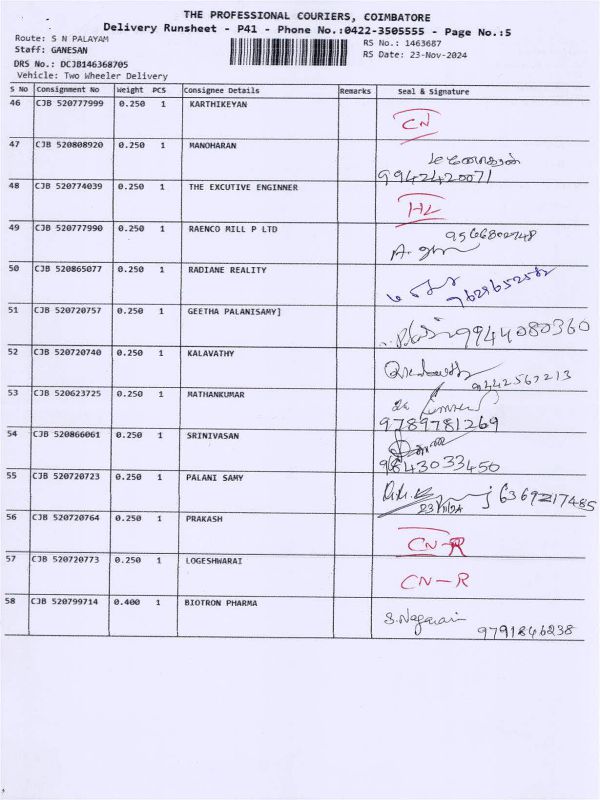 THE PROFESSIONAL COURIERS, COIMBATORE
Delivery Runsheet - P41 - Phone No.:0422-3505555 - Page No.:5
Route: S N PALAYAM
RS No.: 1463687
Staff: GANESAN
RS Date: 23-Nov-2024
DRS No.: DCJB146368705
Vehicle: Two Wheeler Delivery
S No Consignment No Weight PCS Consignee Details Remarks Seal & Signature
46 CJB 520777999 0.250 1 KARTHIKEYAN
CN
47 CJB 520808920 0.250 1 MANOHARAN
9942420071
48 CJB 520774039 0.250 1 THE EXCUTIVE ENGINNER
HL
49 CJB 520777990 0.250 1 RAENCO MILL P LTD
50 CJB 520865077 0.250 1 RADIANE REALITY
51 CJB 520720757 0.250 1 GEETHA PALANISAMY]
9944080360
52 CJB 520720740 0.250 1 KALAVATHY
9442567213
53 CJB 520623725 0.250 1 MATHANKUMAR
9789781269
54 CJB 520866061 0.250 1 SRINIVASAN
9843033450
55 CJB 520720723 0.250 1 PALANI SAMY
6369217485
23/11/24
56 CJB 520720764 0.250 1 PRAKASH
CN-R
57 CJB 520720773 0.250 1 LOGESHWARAI
CN-R
58 CJB 520799714 0.400 1 BIOTRON PHARMA
S.Nagarain
9791846238